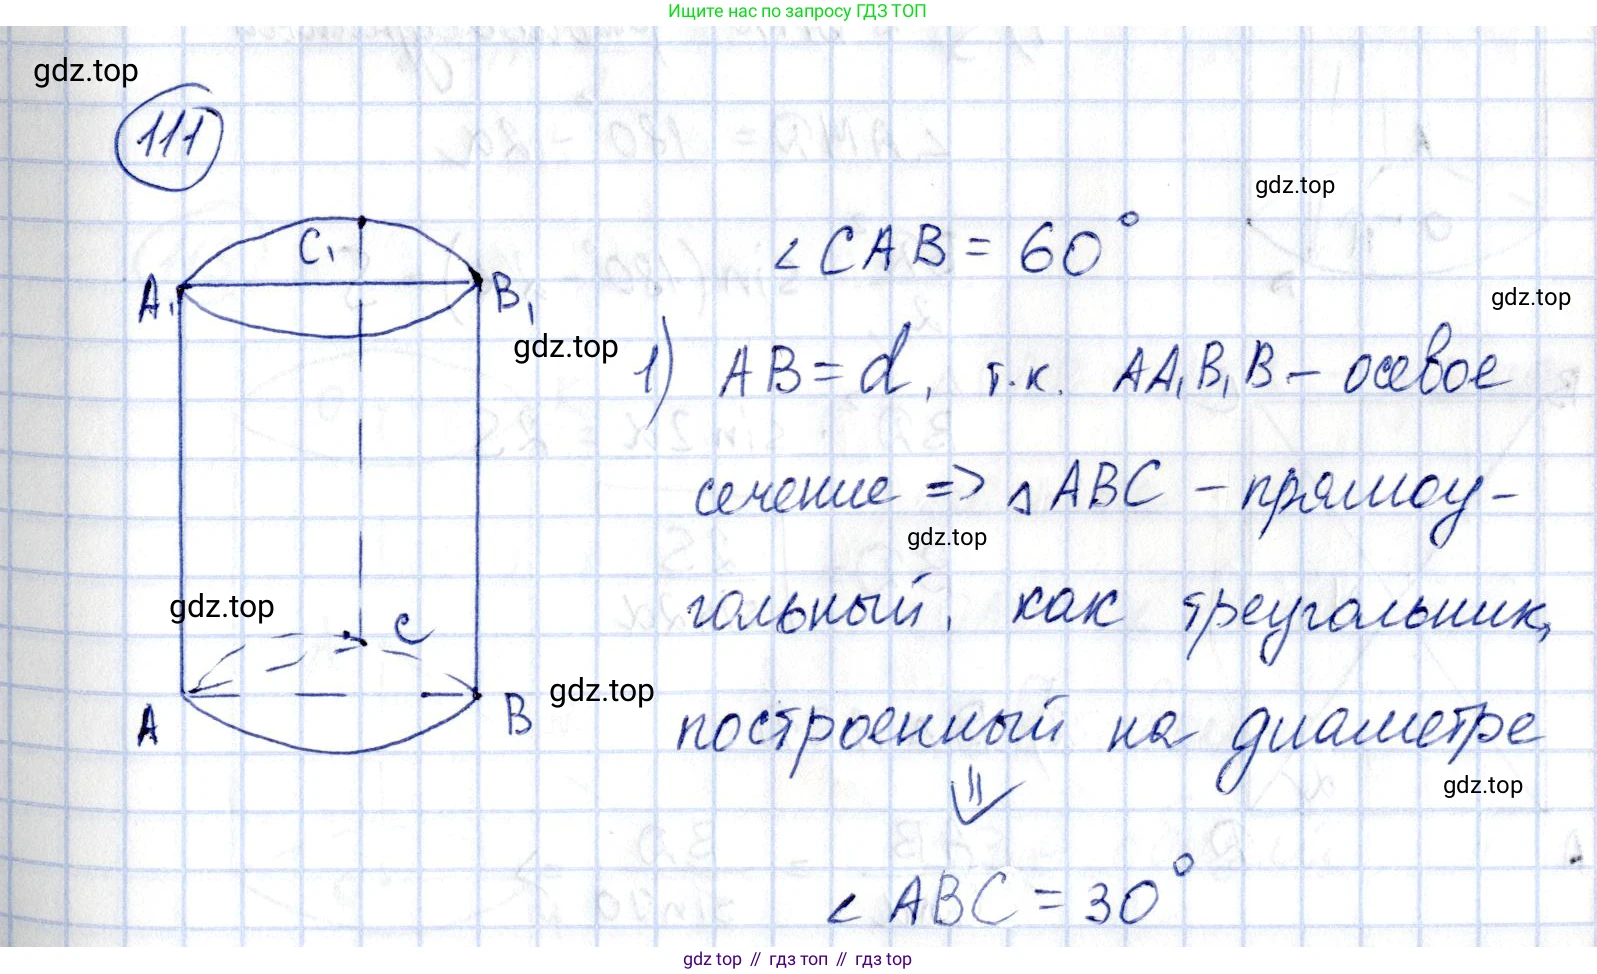 Ищите нас по запросу ГДЗ ТОП
gdz.top
111
gdz.top
∠CAB = 60°
C₁
A₁
B₁
gdz.top
gdz.top
1) AB = d, т.к. AA₁B₁B – осевое
сечение => △ABC – прямоу-
gdz.top
гольный, как треугольник,
gdz.top
C
построенный на диаметре
gdz.top
A
B
gdz.top
⇓
∠ABC = 30°
gdz.top // гдз топ // гдз top